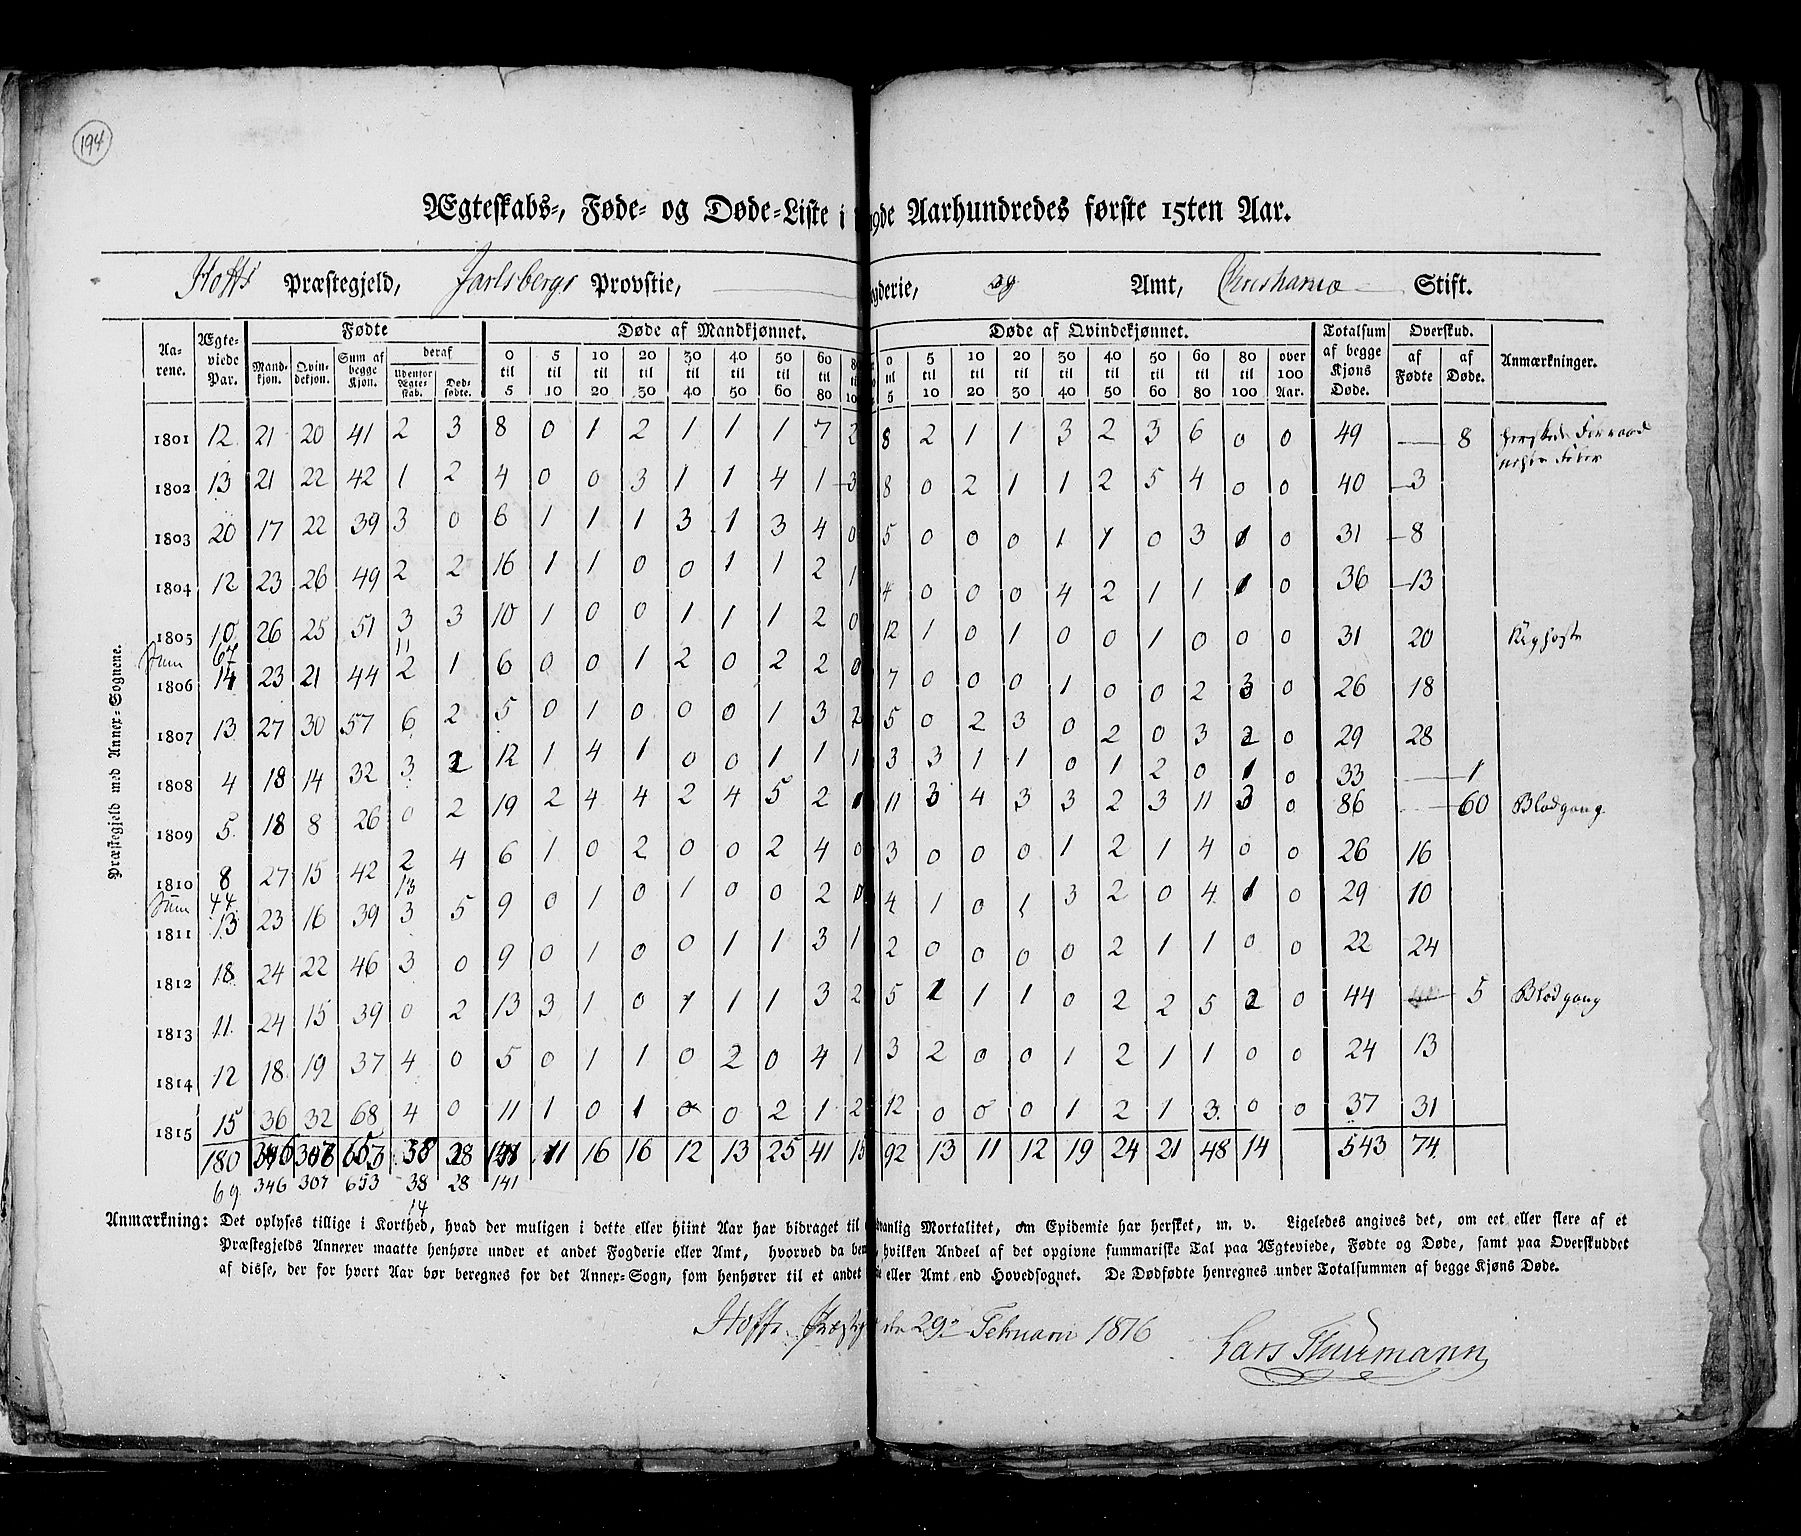 194
Ægteskabs-, Føde- og Døde-Liste i 19de Aarhundredes første 15ten Aar.
Hoffs Præstegjeld, Jarlsbergs Provstie, — gderie, og Amt, Christiania Stift.
Fødte Døde af Mandkjønnet. Døde af Qvindekjønnet. Totalsum af begge Kjøns Døde. Overskud.
Aarene. Ægteviede Par. Mandkjøn. Qvindekjøn. Sum af begge Kjøn. deraf Udenfor Ægteskab. Dødfødte. 0 til 5 5 til 10 10 til 20 20 til 30 30 til 40 40 til 50 50 til 60 60 til 80 80 til 10 0 til 5 5 til 10 10 til 20 20 til 30 30 til 40 40 til 50 50 til 60 60 til 80 80 til 100 over 100 Aar. af Fødte af Døde. Anmærkninger.
Præstegjeld med Annex-Sognene.
1801 12 21 20 41 2 3 8 0 1 2 1 1 1 7 2 8 2 1 1 3 2 3 6 0 0 49 — 8
1802 13 21 22 42 1 2 4 0 0 3 1 1 4 1 3 8 0 2 1 1 2 5 4 0 0 40 3
1803 20 17 22 39 3 0 6 1 1 1 3 1 3 4 0 5 0 0 0 1 1 0 3 1 0 31 8
1804 12 23 26 49 2 2 16 1 1 0 0 1 1 2 1 4 0 0 0 4 2 1 1 1 0 36 13
1805 10 26 25 51 3 3 10 1 0 0 1 1 1 2 0 12 1 0 1 0 0 1 0 0 0 31 20 Kighoste
Sum 67 11
1806 14 23 21 44 2 1 6 0 0 1 2 0 2 2 0 7 0 0 0 1 0 0 2 3 0 26 18
1807 13 27 30 57 6 2 5 0 1 0 0 0 1 3 2 5 0 2 3 0 2 0 3 2 0 29 28
1808 4 18 14 32 3 2 12 1 4 1 0 0 1 1 1 3 3 1 1 0 1 2 0 1 0 33 — 1
1809 5 18 8 26 0 2 19 2 4 4 2 4 5 2 1 11 3 4 3 3 2 3 11 3 0 86 — 60 Blodgang.
1810 8 27 15 42 2 4 6 1 0 2 0 0 2 4 0 3 0 0 0 1 2 1 4 0 0 26 16
Sum 44 13
1811 13 23 16 39 3 5 9 0 1 0 1 0 0 2 0 4 1 0 1 3 2 0 4 1 0 29 10
1812 18 24 22 46 3 0 9 0 1 0 0 1 1 3 1 2 0 0 0 0 2 1 1 0 0 22 24
1813 11 24 15 39 0 2 13 3 1 0 1 1 1 3 2 5 1 1 1 0 2 2 5 2 0 44 5 Blodgang
1814 12 18 19 37 4 0 5 0 1 1 0 2 0 4 1 3 2 0 0 1 2 1 1 0 0 24 13
1815 15 36 32 68 4 0 11 1 0 1 0 0 2 1 2 12 0 0 0 1 2 1 3 0 0 37 31
180 346 307 653 38 28 141 11 16 16 12 13 25 41 15 92 13 11 12 19 24 21 48 14 543 74
69 346 307 653 38 28 141
14
Anmærkning: Det oplyses tillige i Korthed, hvad der muligen i dette eller hiint Aar har bidraget til manlig Mortalitet, om Epidemie har hersket, m. v. Ligeledes angives det, om eet eller flere af et
Præstegjelds Annexer maatte henhøre under et andet Fogderie eller Amt, hvorved da be hvilken Andeel af det opgivne summariske Tal paa Ægteviede, Fødte og Døde, samt paa Overskuddet
af disse, der for hvert Aar bør beregnes for det Annex-Sogn, som henhører til et andet eller Amt end Hovedsognet. De Dødfødte henregnes under Totalsummen af begge Kjøns Døde.
Hoffs den 29de Februarii 1816
Lars Thurmann